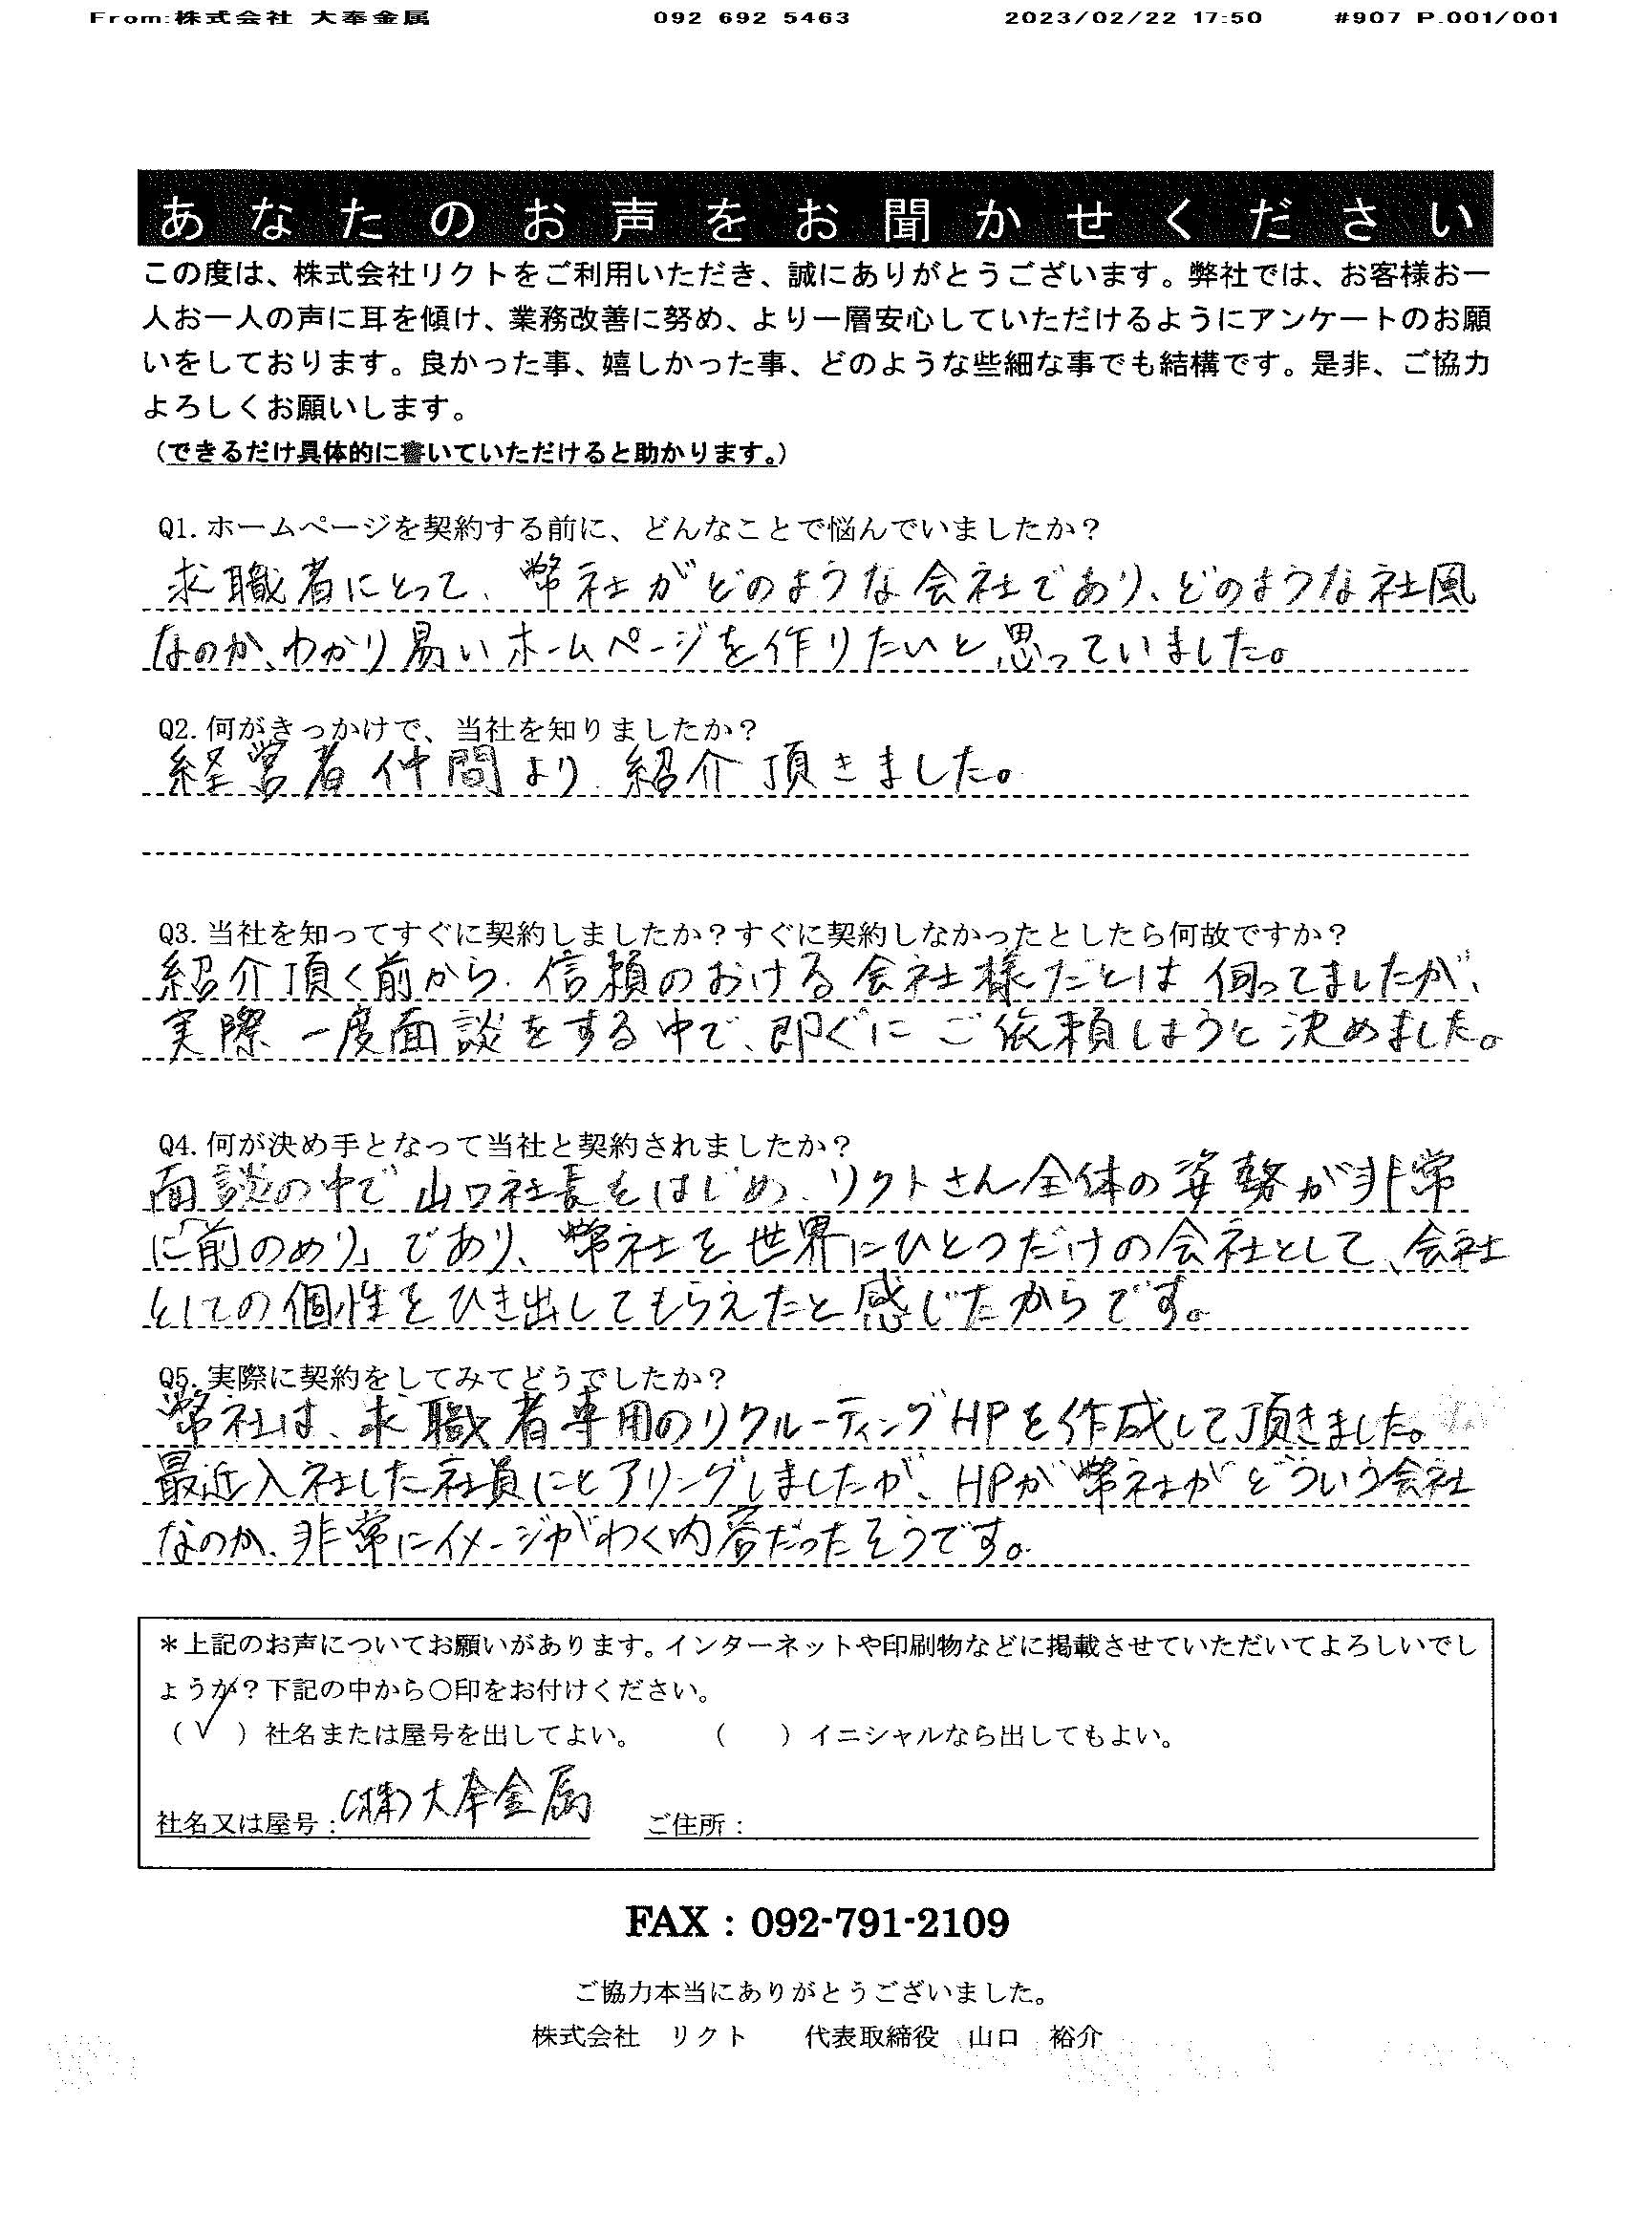 From:株式会社 大奉金属 092 692 5463 2023/02/22 17:50 #907 P.001/001
あなたのお声をお聞かせください
この度は、株式会社リクトをご利用いただき、誠にありがとうございます。弊社では、お客様お一
人お一人の声に耳を傾け、業務改善に努め、より一層安心していただけるようにアンケートのお願
いをしております。良かった事、嬉しかった事、どのような些細な事でも結構です。是非、ご協力
よろしくお願いします。
（できるだけ具体的に書いていただけると助かります。）
Q1.ホームページを契約する前に、どんなことで悩んでいましたか？
求職者にとって、弊社がどのような会社であり、どのような社風
なのか、わかり易いホームページを作りたいと思っていました。
Q2.何がきっかけで、当社を知りましたか？
経営者仲間より、紹介頂きました。
Q3.当社を知ってすぐに契約しましたか？すぐに契約しなかったとしたら何故ですか？
紹介頂く前から、信頼のおける会社様だとは伺ってましたが、
実際一度面談をする中で、即ぐにご依頼しようと決めました。
Q4.何が決め手となって当社と契約されましたか？
面談の中で山口社長をはじめ、リクトさん全体の姿勢が非常
に「前のめり」であり、弊社を世界にひとつだけの会社として、会社
としての個性をひき出してもらえたと感じたからです。
Q5.実際に契約をしてみてどうでしたか？
弊社は、求職者専用のリクルーティングHPを作成して頂きました。
最近入社した社員にヒアリングしましたが、HPが弊社がどういう会社
なのか、非常にイメージがわく内容だったそうです。
＊上記のお声についてお願いがあります。インターネットや印刷物などに掲載させていただいてよろしいでし
ょうか？下記の中から〇印をお付けください。
（✓）社名または屋号を出してよい。 （ ）イニシャルなら出してもよい。
社名又は屋号：(株)大奉金属 ご住所：
FAX：092-791-2109
ご協力本当にありがとうございました。
株式会社 リクト 代表取締役 山口 裕介